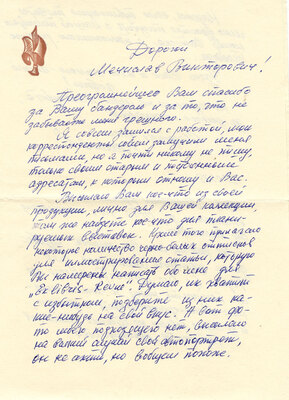 Дорогой
Мечислав Викторович!
Преогромнейшее Вам спасибо
за Вашу бандероль и за то, что не
забываете меня грешного.
Я совсем зашился с работой, мои
корреспонденты совсем замучили меня
письмами, но я почти никому не пишу,
только своим старым и
адресатам, к которым отношу и Вас.
Высылаю Вам кое-что из своей
продукции, лично для Вашей коллекции,
там же найдете кое-что для плани-
руемых выставок. Кроме того прилагаю
некоторое количество черно-белых оттисков
для иллюстрирования статьи, которую
Вы намерены написать обо мне для
"Exlibris-Revue". Думаю, их хватит
с избытком, подберите из них ка-
кие-нибудь на свой вкус. А вот фо-
то моего подходящего нет, высылаю
на всякий случай свой автопортрет,
он не ахти, но вообщем похож.